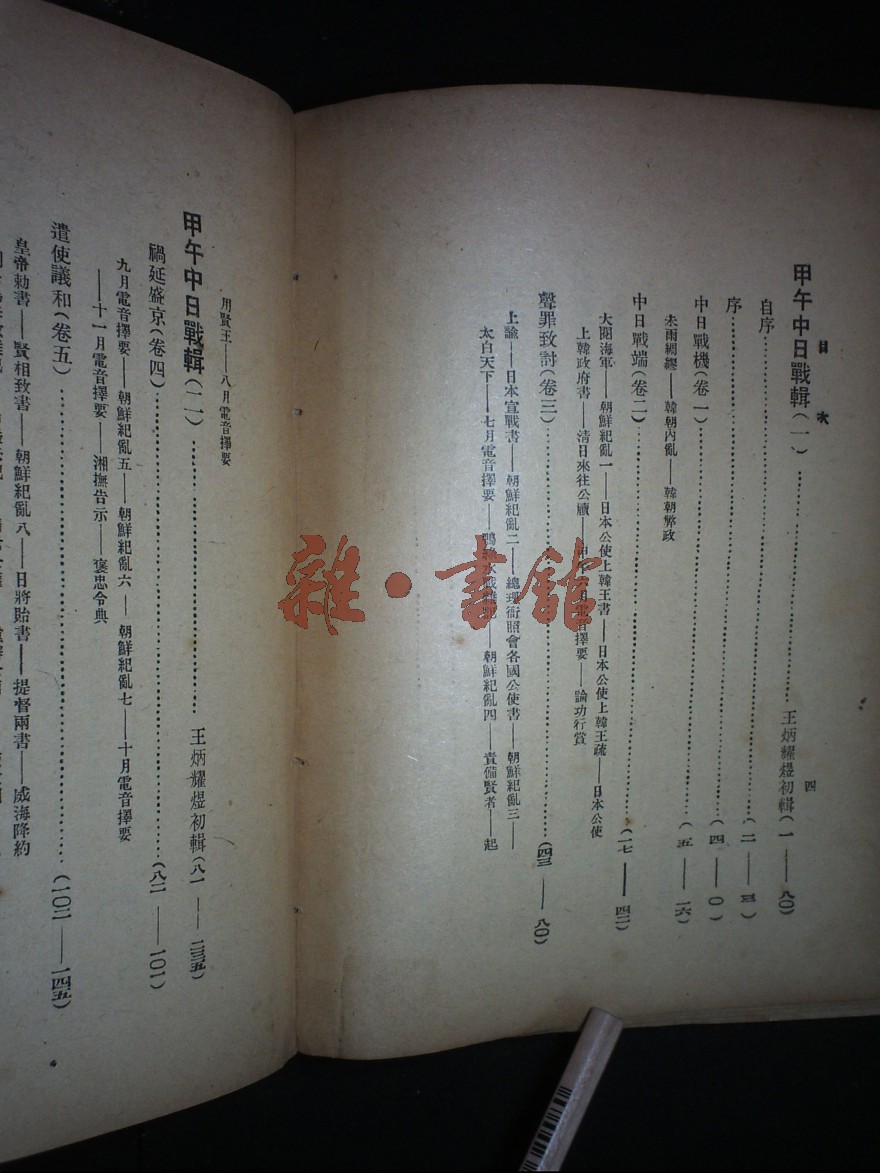 目次
四
甲午中日戰輯(一)……王炳耀煜初輯(一——八〇)
自序……(二——三)
序……(四——〇)
中日戰機(卷一)……(五——一六)
未雨綢繆——韓朝內亂——韓朝弊政
中日戰端(卷二)……(一七——四二)
大閱海軍——朝鮮紀亂一——日本公使上韓王書——日本公使上韓王疏——日本公使
上韓政府書——清日來往公牘——電音擇要——論功行賞
聲罪致討(卷三)……(四三——八〇)
上諭——日本宣戰書——朝鮮紀亂二——總理衙照會各國公使書——朝鮮紀亂三——
太白天下——七月電音擇要——鴨——朝鮮紀亂四——責備賢者——起
用賢王——八月電音擇要
甲午中日戰輯(二)……王炳耀煜初輯(八一——二三五)
禍延盛京(卷四)……(八二——一〇一)
九月電音擇要——朝鮮紀亂五——朝鮮紀亂六——朝鮮紀亂七——十月電音擇要
——十一月電音擇要——湘撫告示——褒忠令典
遣使議和(卷五)……(一〇二——一四五)
皇帝勅書——賢相致書——朝鮮紀亂八——日將貽書——提督兩書——威海降約
雜·書館